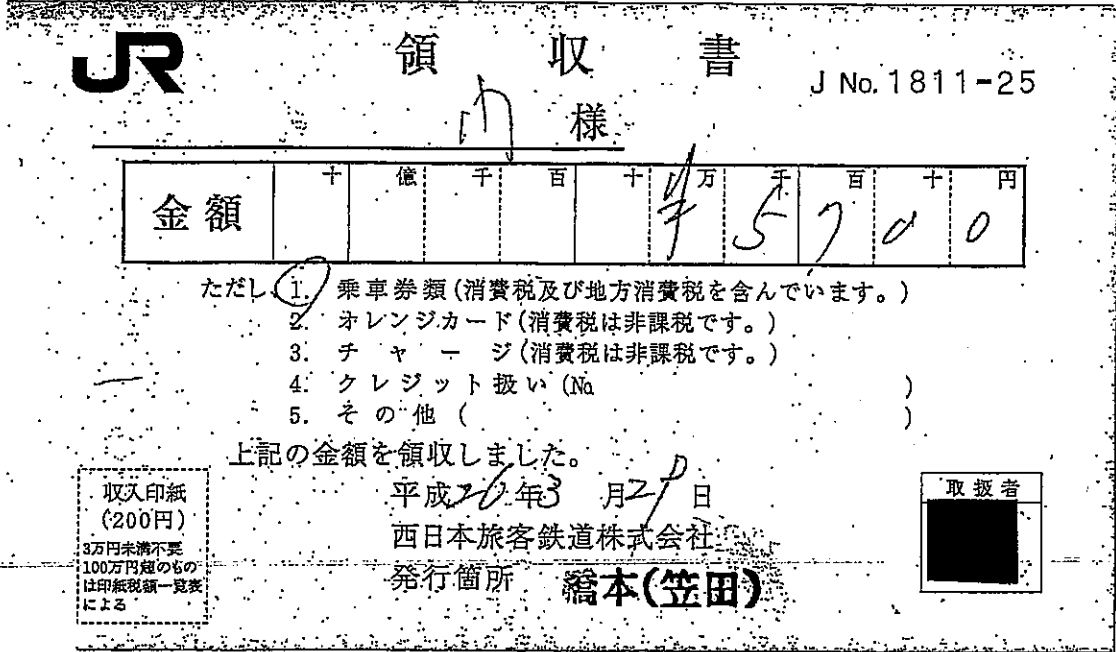 JR
領収書
J No.1811-25
様
金額 十 億 千 百 十 万 千 百 十 円
¥ 5700
ただし、1. 乗車券類(消費税及び地方消費税を含んでいます。)
2. オレンジカード(消費税は非課税です。)
3. チャージ(消費税は非課税です。)
4. クレジット扱い(No. )
5. その他( )
上記の金額を領収しました。
平成26年3月29日
西日本旅客鉄道株式会社
発行箇所 橋本(笠田)
収入印紙
(200円)
3万円未満不要
100万円超のもの
は印紙税額一覧表
による
取扱者